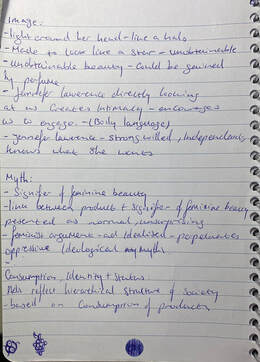 Image:
- light around her head - like a halo
- Made to look like a star - unobtainable
- unobtainable beauty - could be gained
by perfume
- Jennifer lawrence directly looking
at us Creates intimacy - encourages
us to engage. - (Body language)
- Jennifer lawrence - strong willed, independant,
knows what she wants
Myth:
- Signifer of feminine beauty
- link between product + signifer of feminine beauty
presented as normal, unsurprising
- feminist arguments - ad idealised -
oppressive ideological myths
-
Consumption, Identity + Status
Ads reflect hierarchical structure of society
- based on Consumption of products